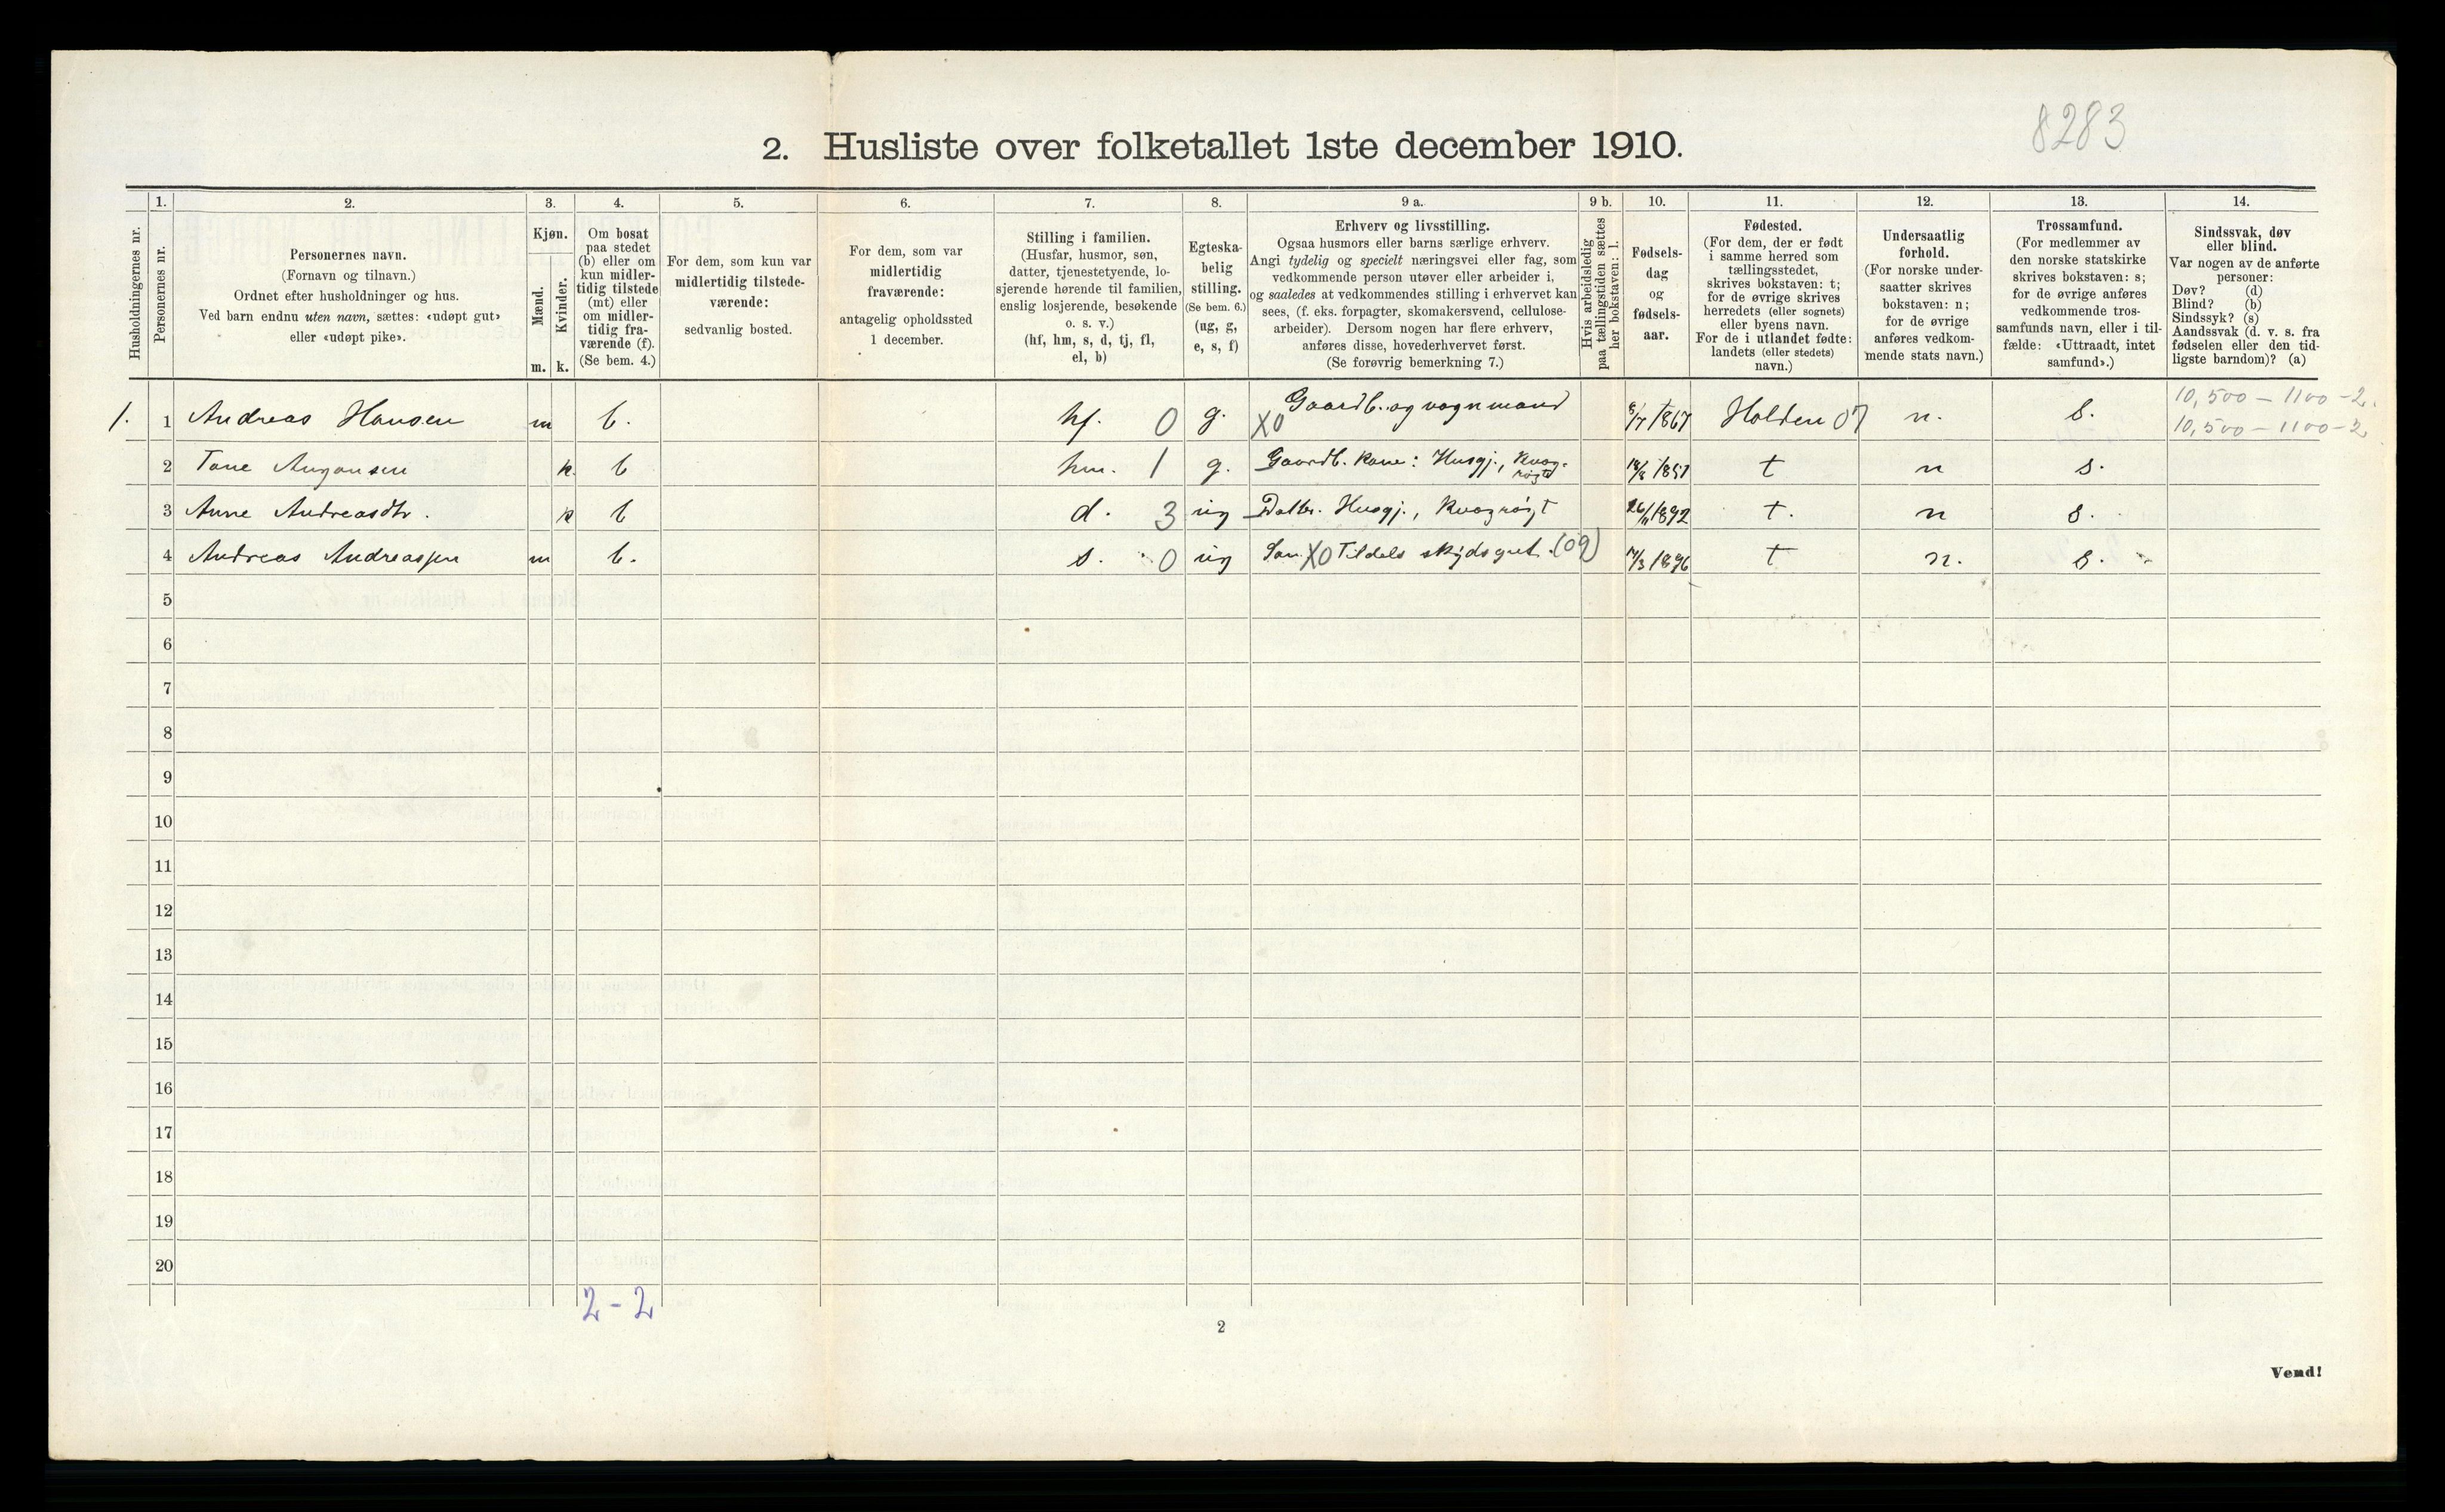 8283
2. Husliste over folketallet 1ste december 1910.
Husholdningernes nr.
1.
Personernes nr.
2.
Personernes navn.
(Fornavn og tilnavn.)
Ordnet efter husholdninger og hus.
Ved barn endnu uten navn, sættes: «udøpt gut»
eller «udøpt pike».
3.
Kjøn.
Mænd.
Kvinder.
m. k.
4.
Om bosat
paa stedet
(b) eller om
kun midler-
tidig tilstede
(mt) eller
om midler-
tidig fra-
værende (f).
(Se bem. 4.)
5.
For dem, som kun var
midlertidig tilstede-
værende:
sedvanlig bosted.
6.
For dem, som var
midlertidig
fraværende:
antagelig opholdssted
1 december.
7.
Stilling i familien.
(Husfar, husmor, søn,
datter, tjenestetyende, lo-
sjerende hørende til familien,
enslig losjerende, besøkende
o. s. v.)
(hf, hm, s, d, tj, fl,
el, b)
8.
Egteska-
belig
stilling.
(Se bem. 6.)
(ug, g,
e, s, f)
9 a.
Erhverv og livsstilling.
Ogsaa husmors eller barns særlige erhverv.
Angi tydelig og specielt næringsvei eller fag, som
vedkommende person utøver eller arbeider i,
og saaledes at vedkommendes stilling i erhvervet kan
sees, (f. eks. forpagter, skomakersvend, cellulose-
arbeider). Dersom nogen har flere erhverv,
anføres disse, hovederhvervet først.
(Se forøvrig bemerkning 7.)
9 b.
Hvis arbeidsledig
paa tællingstiden sættes
her bokstaven: l.
10.
Fødsels-
dag
og
fødsels-
aar.
11.
Fødested.
(For dem, der er født
i samme herred som
tællingsstedet,
skrives bokstaven: t;
for de øvrige skrives
herredets (eller sognets)
eller byens navn.
For de i utlandet fødte:
landets (eller stedets)
navn.)
12.
Undersaatlig
forhold.
(For norske under-
saatter skrives
bokstaven: n;
for de øvrige
anføres vedkom-
mende stats navn.)
13.
Trossamfund.
(For medlemmer av
den norske statskirke
skrives bokstaven: s;
for de øvrige anføres
vedkommende tros-
samfunds navn, eller i til-
fælde: «Uttraadt, intet
samfund».)
14.
Sindssvak, døv
eller blind.
Var nogen av de anførte
personer:
Døv? (d)
Blind? (b)
Sindssyk? (s)
Aandssvak (d. v. s. fra
fødselen eller den tid-
ligste barndom)? (a)
10,500 – 1100 – 2.
1. 1 Andreas Hansen m b. hf. 0 g. X0 Gaardb. og vognmand 1867 Holden 07 n. s. 10,500 – 1100 – 2
2 Tone k b hm. 1 g. Gaardb. kone: Husgj., Kvæg-
røgt t n s.
3 Anne Andreasdtr. k b d. 3 ug Datter. Husgj., Kvægrøgt 26/11 1892 t. n s.
4 Andreas Andreassen m b. s. 0 ug Søn. X0 Tildels skydsgut. (09) 1896 t n. s.
5
6
7
8
9
10
11
12
13
14
15
16
17
18
19
20
2 – 2
2
Vend!